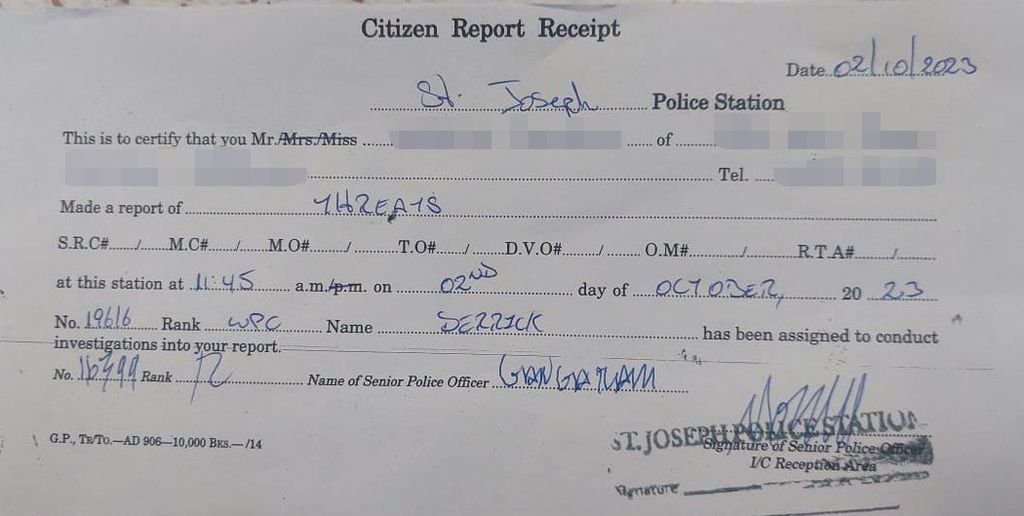 Citizen Report Receipt
Date 02/10/2023
St. Joseph Police Station
This is to certify that you Mr./Mrs./Miss ........ of ........
Tel. .....
Made a report of THREATS
S.R.C#....../...... M.C#....../...... M.O#......../......... T.O#....../...... D.V.O#....../...... O.M#............/............ R.T.A#......../......
at this station at 11:45 a.m./p.m. on 02ND day of OCTOBER, 20 23
No. 19616 Rank WPC Name DERRICK has been assigned to conduct
investigations into your report.
No. 16799 Rank Name of Senior Police Officer GANGARAM
ST. JOSEPH POLICE STATION
Signature of Senior Police Officer
I/C Reception Area
G.P., TR/TO.—AD 906—10,000 BKS.— /14
Signature